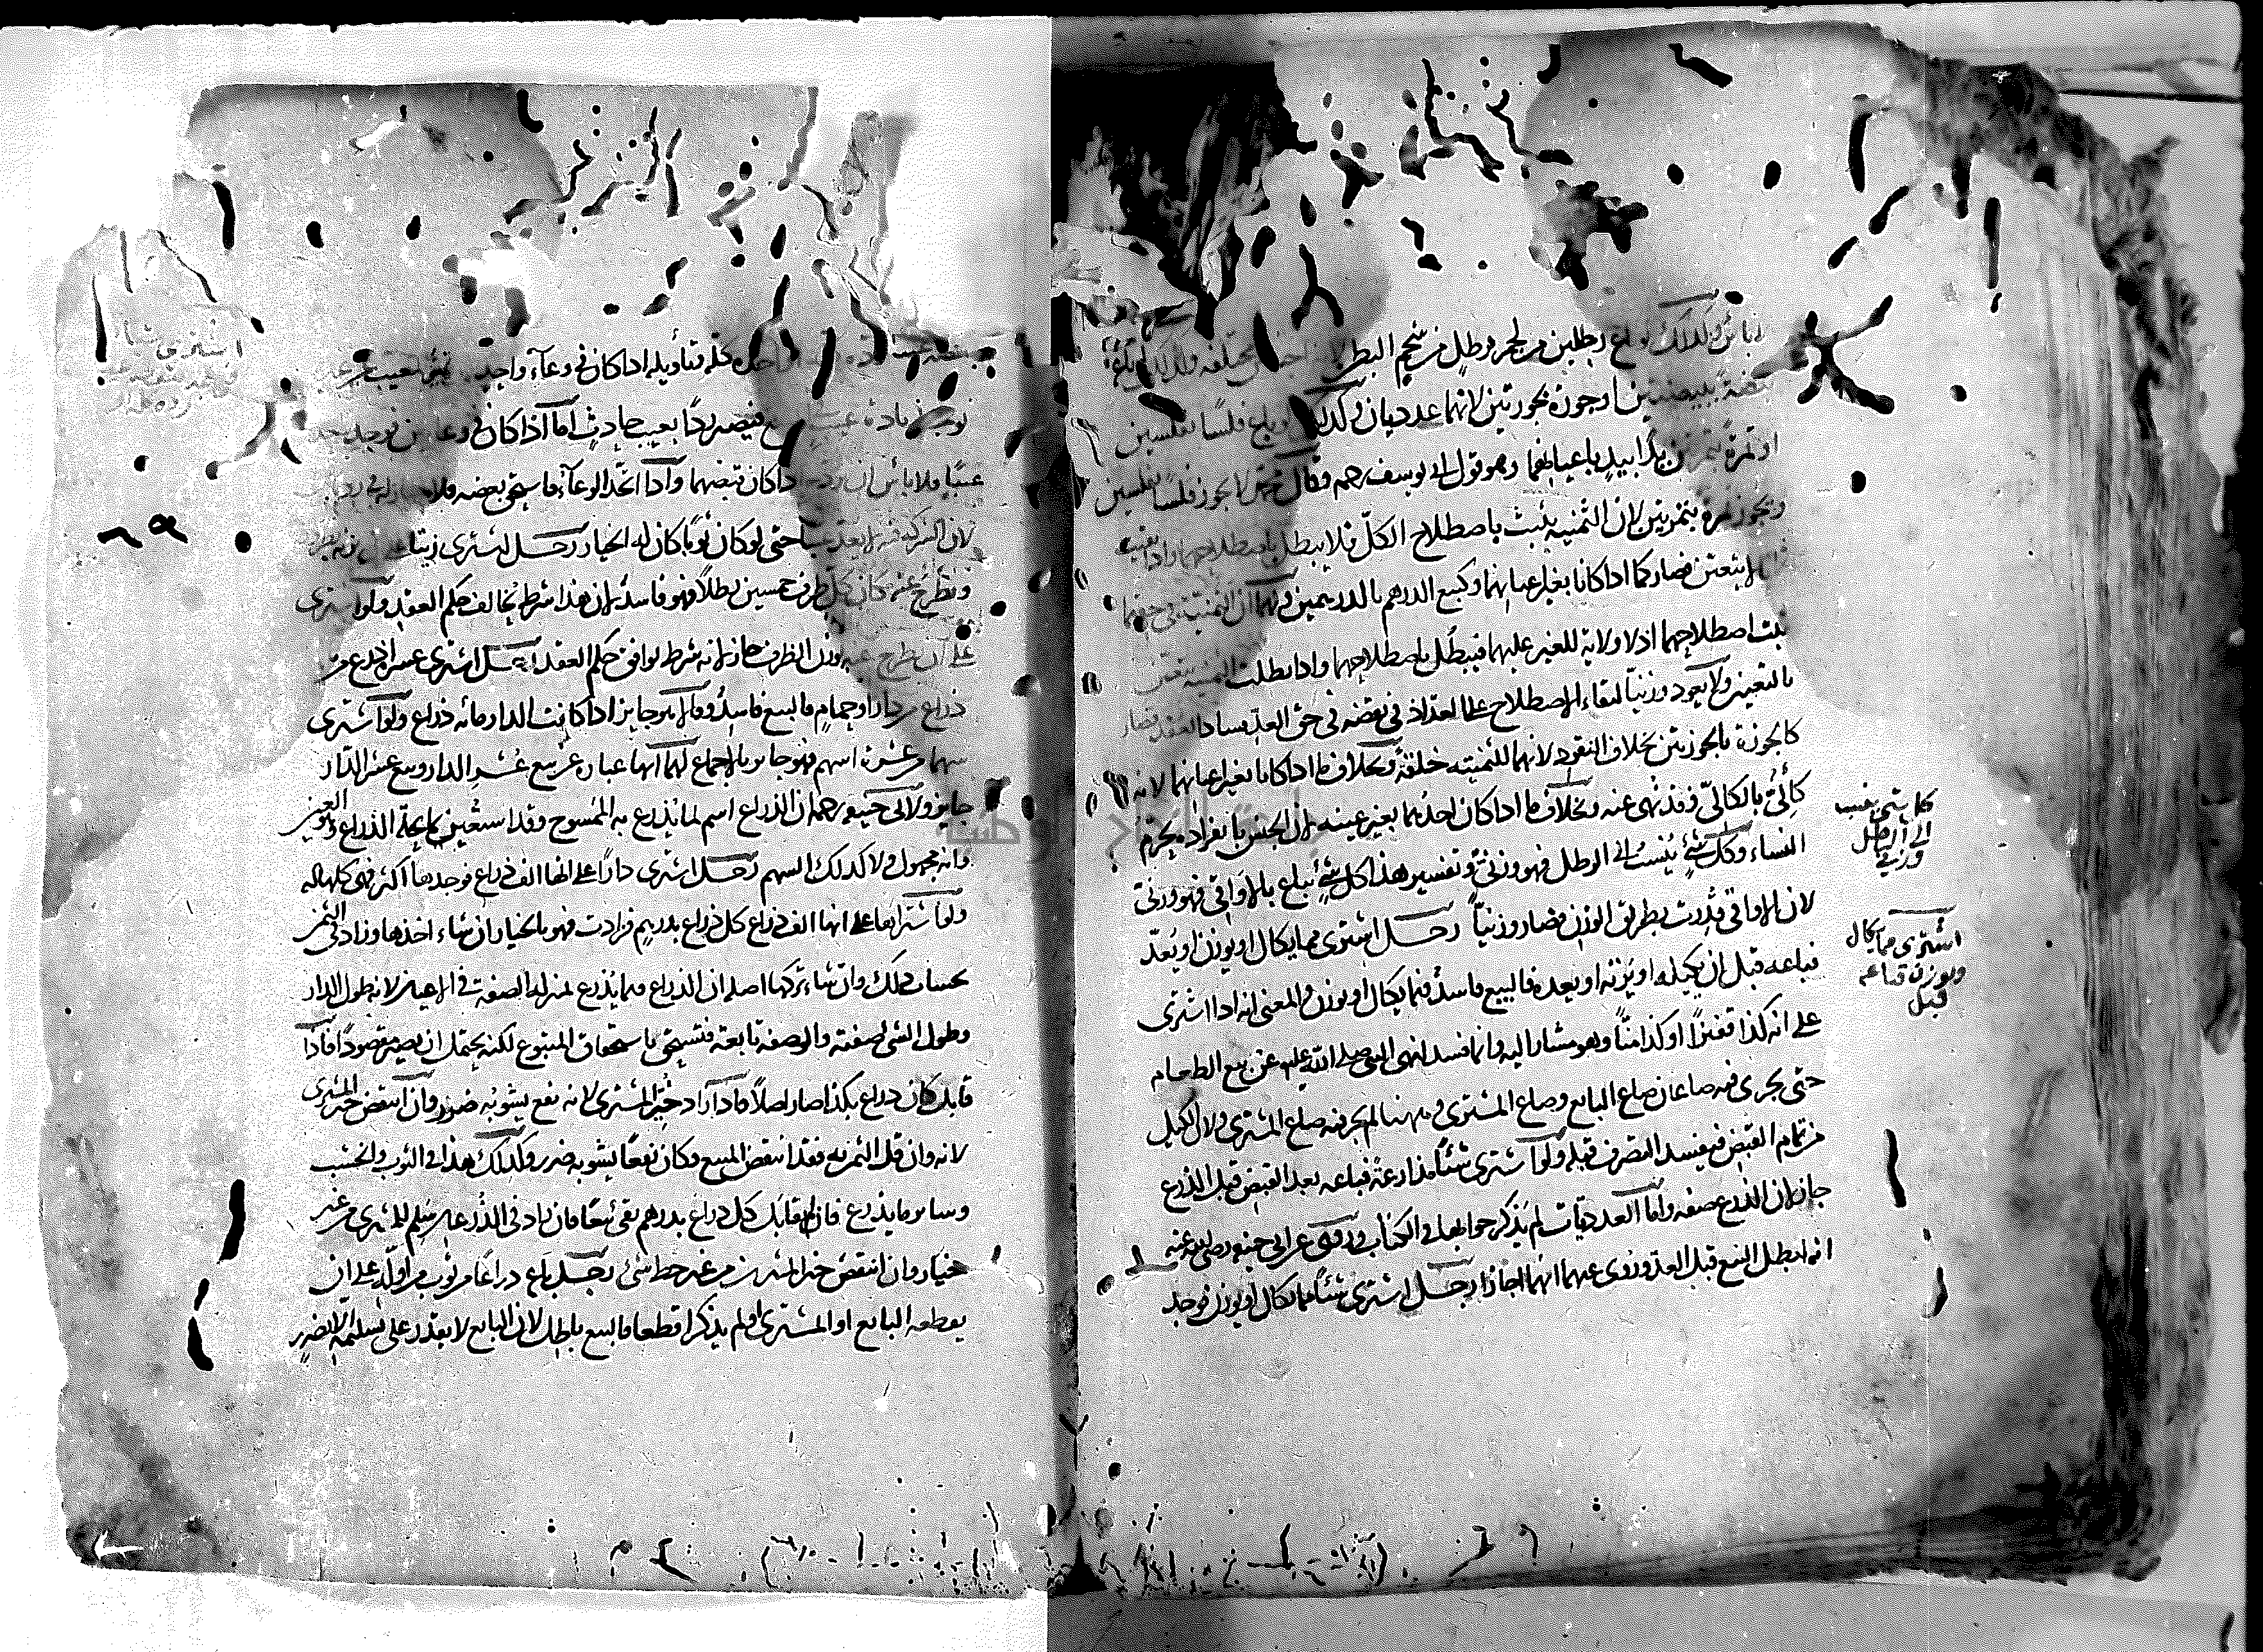 لا بأس وكذلك لو باع رطلين من لحم ورطل من شحم البطن
بيضة ببيضتين او جوزة بجوزتين لانهما عدديان وكذلك لو باع فلسا بفلسين
او تمرة بتمرتين يدا بيد باعيانهما وهو قول ابى يوسف رحمه وقال محمد لا يجوز فلسا بفلسين
ويجوز تمرة بتمرتين لان الثمنيه يثبت باصطلاح الكل فلا يبطل باصطلاحهما واذا بقيت
لا يتعين فصار كما اذا كانا بغير اعيانهما وكبيع الدرهم بالدرهمين ولهما ان الثمنية فى حقهما
يثبت اصطلاحهما اذ لا ولاية للغير عليهما فيبطل باصطلاحهما واذا بطلت الثمنيه يتعين
بالتعيين ولا يعود وزنيا لبقاء الاصطلاح على العد اذ فى نقضه فى حق العد فساد العقد فصار
كالجوزة بالجوزتين بخلاف النقود لانهما للثمنيه خلقة وبخلاف ما اذا كانا بغير اعيانهما لانه
كالئ بالكالئ وقد نهى عنه وبخلاف ما اذا كان احدهما بغير عينه لان الجنس بانفراده يحرم
النساء وكل شئ ينسب الى الرطل فهو وزنى وتفسير هذا كل شئ يباع بالاواقى فهو وزنى
لان الاواقى قدرت بطريق الوزن فصار وزنيا رجل اشترى مما يكال او يوزن او يعد
فباعه قبل ان يكيله او يزنه او يعده فالبيع فاسد فيما يكال او يوزن والمعنى انه اذا اشترى
على انه كذا قفيزا او كذا منا وهو مشار اليه وانما فسد لنهى النبى صلى الله عليه عن بيع الطعام
حتى يجرى فيه صاعان صاع البايع وصاع المشترى وههنا لم يجر فيه صاع المشترى ولان الكيل
من تمام القبض فيفسد التصرف قبله ولو اشترى شيئا مذارعة فباعه بعد القبض قبل الذرع
جاز لان الذرع صفه واما العدديات لم يذكر جوابها فى الكتاب وروى عن ابى حنيفه رضى الله عنه
انه ابطل البيع قبل العد وروى عنهما انهما اجازا رجل اشترى شيئا مما يكال او يوزن فوجد
كل شئ ينسب
الى الرطل
وزنى
اشترى مما يكال
ويوزن فباعه
قبل
كله وتأويله اذا كان فى وعاء واحد
بعيب حادث اما اذا كان فى وعاءين فوجد باحدهما
عيبا فلا بأس ان اذا كان قبضهما واذا اتحد الوعاء فاستحق بعضه فلا خيار له فى رد
لان الشركة فيه لا يعد عيبا حتى لو كان ثوبا كان له الخيار رجل اشترى زيتا على ان يزنه بظرفه
ويطرح عنه مكان كل ظرف خمسين رطلا فهو فاسد لان هذا شرط يخالف حكم العقد ولو اشترى
على ان يطرح عنه وزن الظرف جاز لانه شرط يوافق حكم العقد رجل اشترى عشرة اذرع من
ذراع من دار او حمام فالبيع فاسد وقالا هو جايز اذا كانت الدار مائه ذراع ولو اشترى
سهما من عشرة اسهم فهو جايز بالاجماع لهما انها عبارة عن بيع عشر الدار وبيع عشر الدار
جايز ولابى حنيفه رحمه ان الذراع اسم لما يذرع به الممسوح وقد استعير لما يحله الذراع وهو العين
وانه مجهول ولا كذلك السهم رجل اشترى دارا على انها الف ذراع فوجدها اكثر فهى كلها له
ولو اشتراها على انها الف ذراع كل ذراع بدرهم فزادت فهو بالخيار ان شاء اخذها وزاد فى الثمن
بحساب ذلك وان شاء تركها اصله ان الذراع فيما يذرع بمنزله الصفة فى الاعيان لانه طول الدار
وطول الشئ لصفته والوصف تابعة فتستحق باستحقاق المتبوع لكنه يحتمل ان يصير مقصودا فاذا
قابل كل ذراع بكذا صار اصلا فاذا زاد خير المشترى لانه نفع يشوبه ضرر وان انتقض خير المشترى
لانه وان قل الثمن به فقد انتقض المبيع فكان نفعا يشوبه ضرر وكذلك هذا فى الثوب والخشب
وساير ما يذرع فان لم يقابل كل ذراع بدرهم بقى تبعا فان زاد فى الذرعان سلم للمشترى من غير
خيار وان انتقض خير المشترى من غير حط شئ رجل باع ذراعا من ثوب من اوله على ان
يقطعه البايع او المشترى او لم يذكرا قطعا فالبيع باطل لان البايع لا يقدر على تسليمه الا بضرر
٩٨